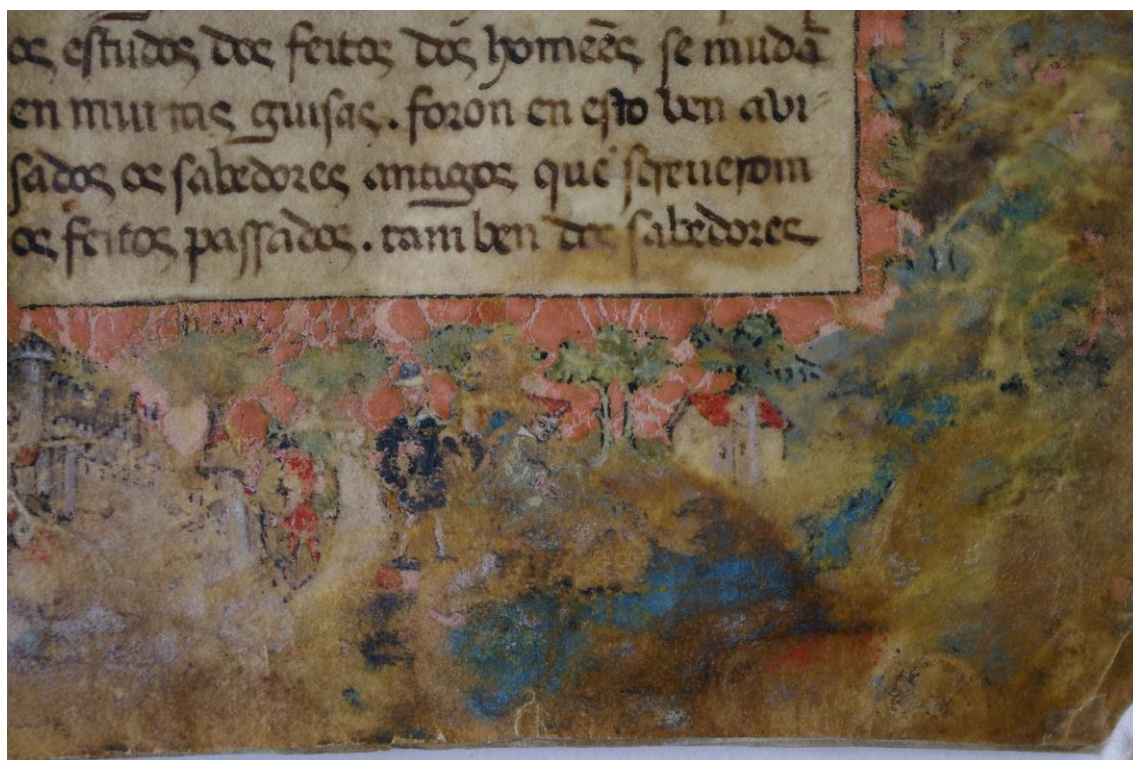 os estudos dos feitos dos homeẽs se mudã
en muitas guisas . foron en esto ben avi-
sados os sabedores antigos que screuerom
os feitos passados . tam ben dos sabedores